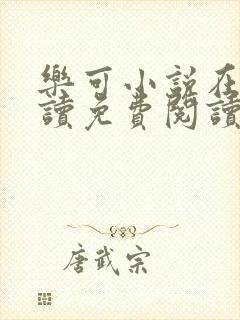 樂可小説在
讀免費閱讀
唐武宗